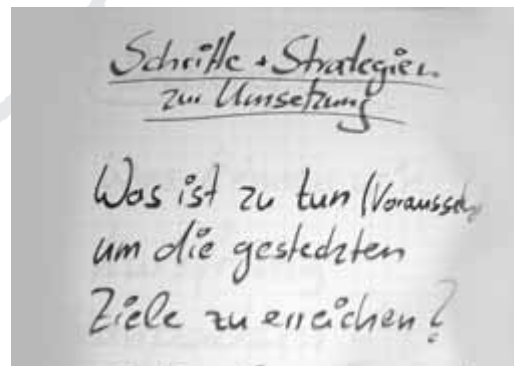 Schritte + Strategien
zur Umsetzung
Was ist zu tun (Voraussetz
um die gesteckten
Ziele zu erreichen?